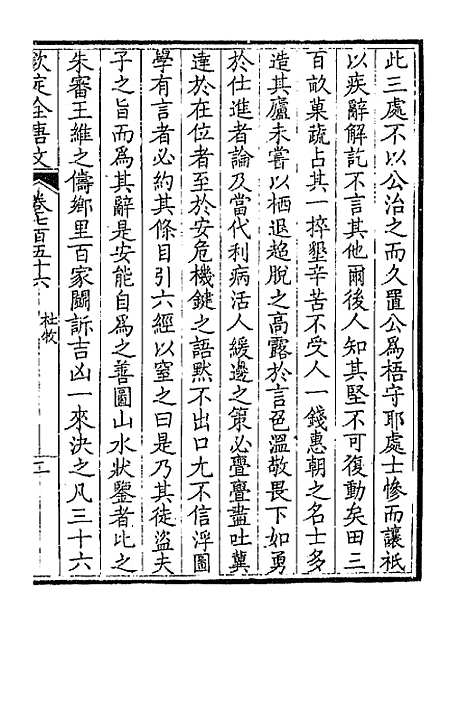 此三處不以公治之而久置公爲梧守耶處士慘而讓祇
以疾辭解訖不言其他爾後人知其堅不可復動矣田三
百畝菓蔬占其一捽墾辛苦不受人一錢惠朝之名士多
造其廬未嘗以栖退超脫之高露於言色溫敬畏下如勇
於仕進者論及當代利病活人緩邊之策必亹亹盡吐冀
達於在位者至於安危機鍵之語默不出口尤不信浮圖
學有言者必約其條目引六經以窒之曰是乃其徒盜夫
子之旨而爲其辭是安能自爲之善圖山水狀鑒者比之
朱審王維之儔鄉里百家鬬訴吉凶一來決之凡三十六
欽定全唐文 卷七百五十六 杜牧 二